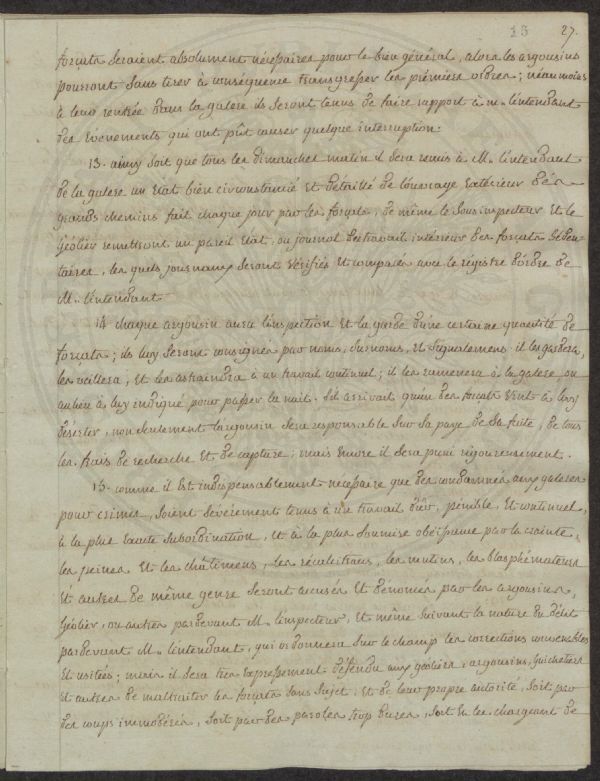 13 27.
forçats seraient absolument nécessaires pour le bien général, alors les argousins
pourront sans tirer à conséquence transgresser les premiers ordres; néanmoins
à leur rentrée dans la galere ils seront tenus de faire rapport à m. l'intendant
des evenements qui ont pût causer quelque interruption.
13. ainsy soit que tous les dimanches matin il sera remis à M. l'intendant
de la galere un Etat bien circonstancié et détaillé de l'ouvrage extérieur des
grands chemins fait chaque jour par les forçats, de même le sous inspecteur Et le
Géolier remettront un pareil Etat, ou journal du travail intérieur des forçats séden-
taires, les quels journaux seront vérifiés Et comparés avec le régistre d'ordre de
M. l'intendant.
14. chaque argousin aura l'inspection Et la garde d'une certaine quantité de
forçats; ils luy seront consignés par noms, surnoms, Et signalemens il les gardera,
les veillera, Et les astraindra à un travail continuel; il les ramenera à la galere, ou
au lieu à luy indiqué pour passer la nuit. S'il arrivait qu'un des forcats vint à
déserter, non seulement l'argousin sera responsable sur sa paye de sa fuite, de tous
les frais de recherche Et de capture; mais encore il sera puni rigoureusement.
15. comme il Est indispensablement nécessaire que des condamnés aux galeres
pour crimes, soient sévèrement tenus à un travail dûr, pénible, Et continuel,
à la plus Exacte subordination, Et à la plus soumise obéissance par la crainte,
les peines Et les châtimens, les récalcitrans, les mutins, les blasphémateurs
Et autres de même genre seront accusés Et dénoncés par les argousins,
Géolier, ou autres pardevant M. l'inspecteur, Et même suivant la nature du délit
pardevant M. l'intendant, qui ordonnera sur le champ les corrections convenables
Et usitées; mais il sera très Expressement défendu aux geoliers, argousins, Guichetiers
Et autres de maltraiter les forçats sans sujet, Et de leur propre autorité, soit par
des coups immodérés, soit par des paroles trop dures, soit En les chargeant de